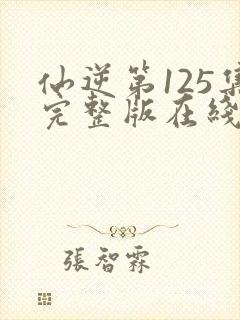 仙逆第125集
完整版在綫
張智霖